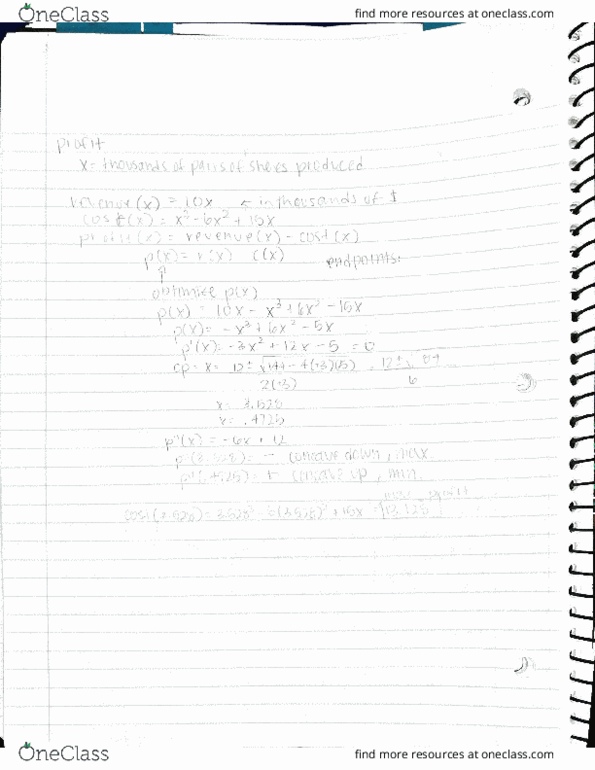 OneClass
find more resources at oneclass.com
profit
x = thousands of pairs of shoes produced
revenue(x) = 10x ← in thousands of $
cost(x) = x³ - 6x² + 15x
profit(x) = revenue(x) - cost(x)
p(x) = r(x) c(x) endpoints:
↑
optimize p(x)
p(x) = 10x - x³ + 6x² - 15x
p(x) = -x³ + 6x² - 5x
p'(x) = -3x² + 12x - 5 = 0
cp = x = 12 ± √144 - 4(-3)(-5) 12 ± √84
2(-3) 6
x = 3.528
x = .4725
p"(x) = -6x + 12
p"(3.528) = - concave down, max
p"(.4725) = + concave up, min.
max profit
cost(3.528) = 3.528³ - 6(3.528)² + 15x = 13.128
OneClass
find more resources at oneclass.com